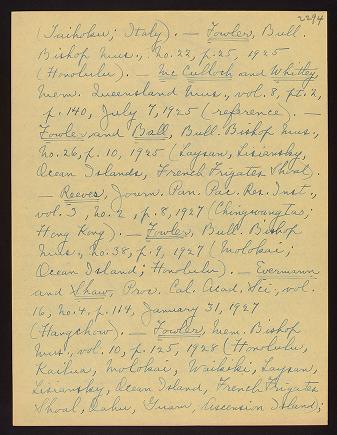 2294
(Taihoku; Italy). — Fowler, Bull.
Bishop Mus., no. 22, p. 25, 1925
(Honolulu). — McCulloch and Whitley,
Mem. Queensland Mus., vol. 8, pt. 2,
p. 140, July 7, 1925 (reference). —
Fowler and Ball, Bull. Bishop Mus.,
no. 26, p. 10, 1925 (Laysan, Lisiansky,
Ocean Islands, French Frigates Shoal).
— Reeves, Journ. Pan. Pac. Res. Inst.,
vol. 3, no. 2, p. 8, 1927 (Chingwangtao;
Hong Kong). — Fowler, Bull. Bishop
Mus., no. 38, p. 9, 1927 (Molokai;
Ocean Island; Honolulu). — Evermann
and Shaw, Proc. Cal. Acad. Sci., vol.
16, no. 4, p. 114, January 31, 1927
(Hangchow). — Fowler, Mem. Bishop
Mus., vol. 10, p. 125, 1928 (Honolulu,
Kailua, Molokai, Waikiki, Laysan,
Lisiansky, Ocean Island, French Frigates
Shoal, Oahu, Guam, Ascension Island;